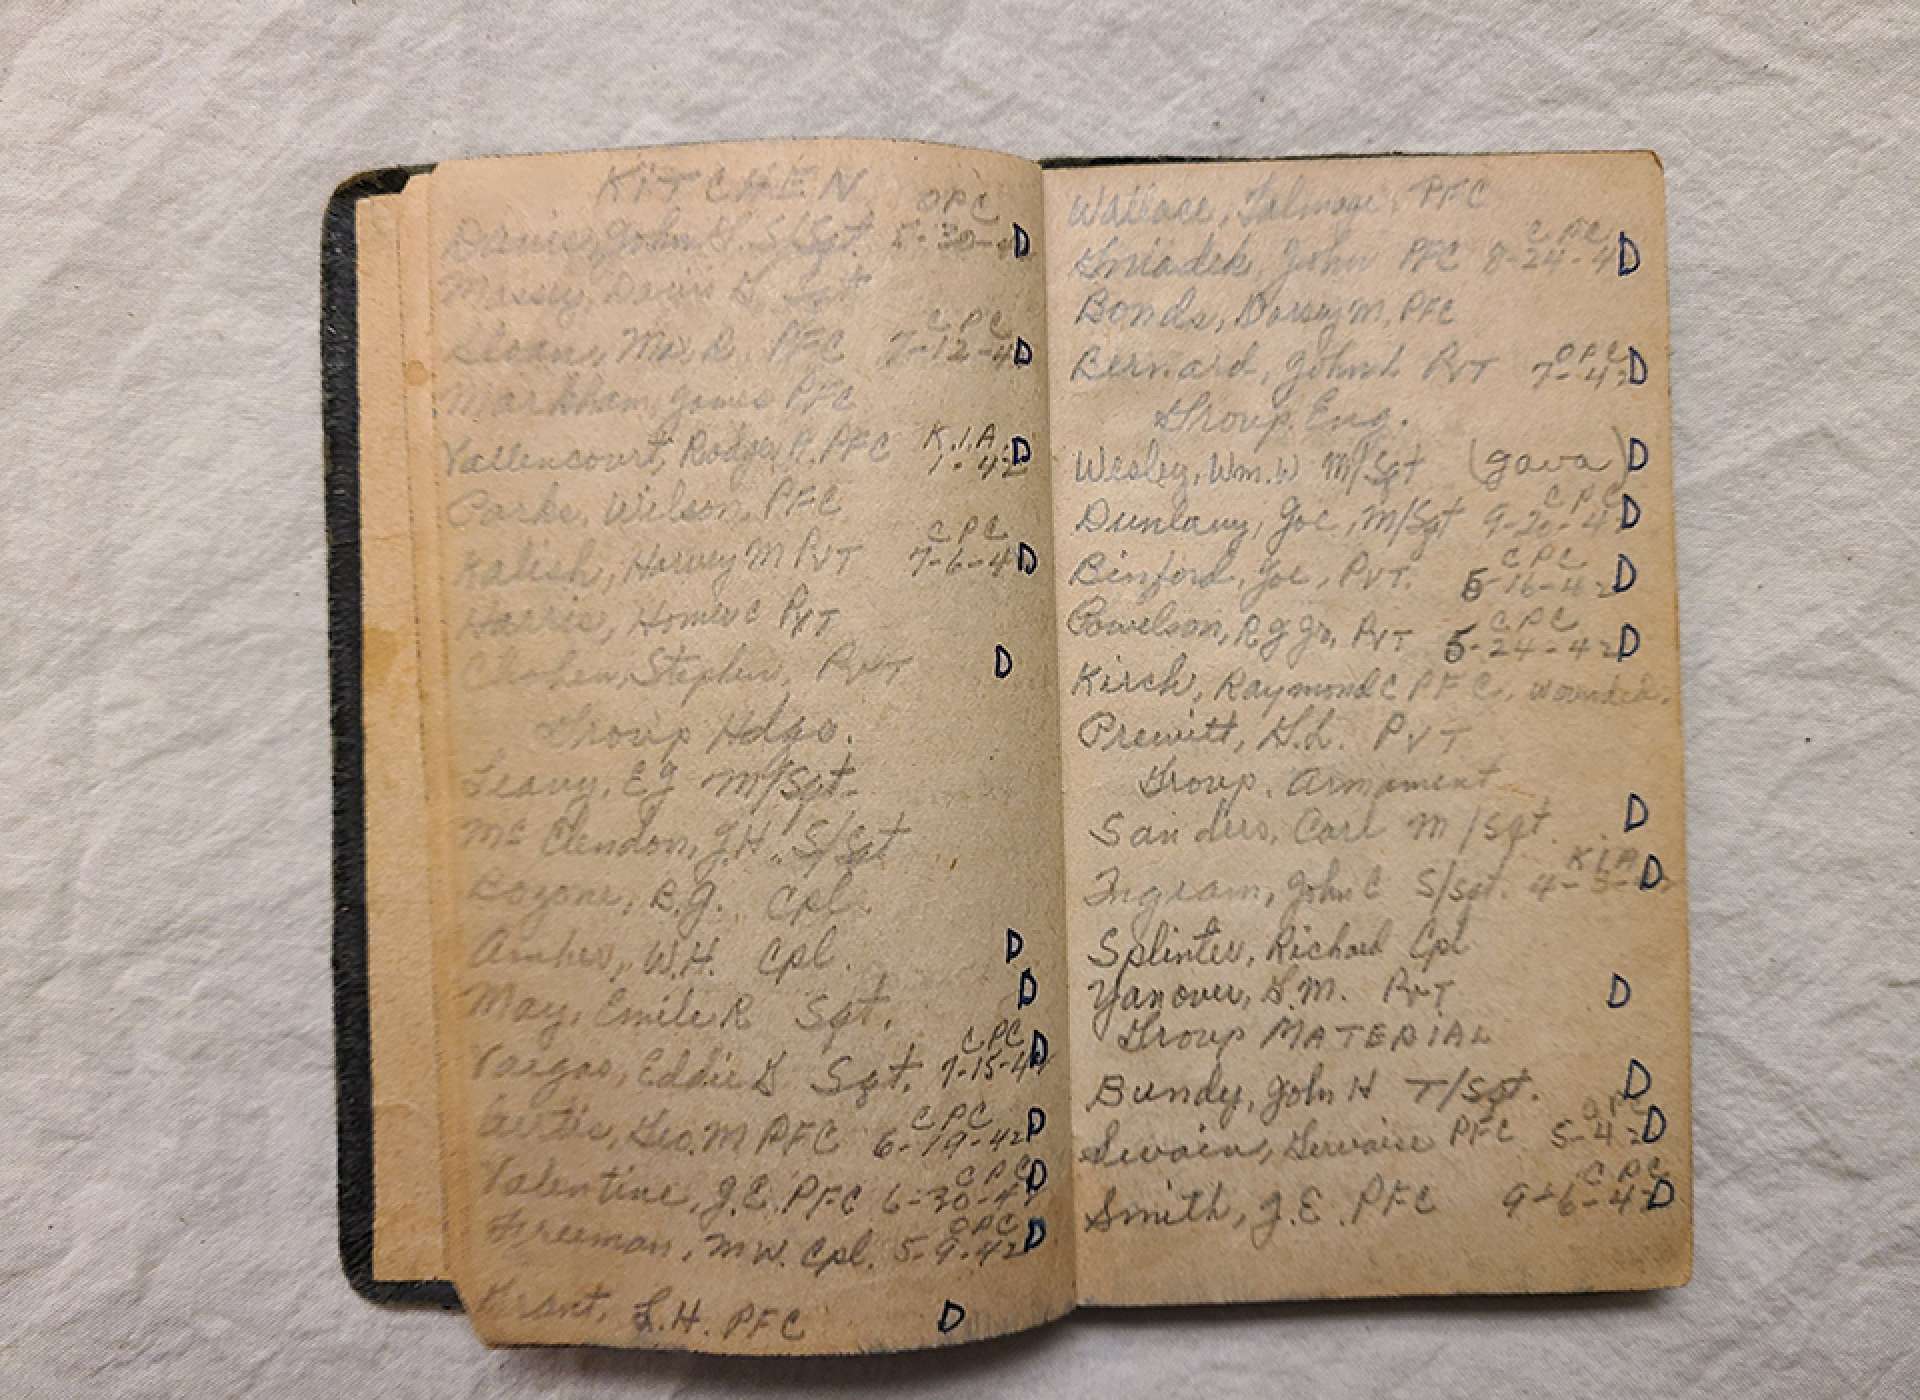 KITCHEN
OPC
John S/Sgt. 5-30-4 D
Massey, David Sgt
CPC
Sloan, Max R. PFC 7-12-4 D
Markham, James PFC
K.I.A.
Vallencourt, Rodger H. PFC 7-42 D
Parks, Wilson, PFC
CPC
Kalish, Harvey M PVT 7-6-4 D
Harris, Homer C PVT
Stephen, PVT D
Group Hdqs.
Leavy, E J M/Sgt.
Mc Clendon, J.H. S/Sgt
Bozone, B.J. Cpl.
W.H. Cpl. D
May, Emile R Sgt. D
CPC
Vargas, Eddie G Sgt. 7-15-4 D
CPC
Geo. M PFC 6-19-42 D
CPC
Valentine, J.E. PFC 6-30-4 D
OPC
Freeman, M W. Cpl. 5-9-42 D
L.H. PFC D
Wallace, Talmage, PFC
CPC
Gniadek, John PFC 8-24-4 D
Bonds, Dorsey M. PFC
OPC
Bernard, John L PVT 7-42 D
Group Eng.
Wesley, Wm. W M/Sgt (Java) D
CPC
Dunlavy, Joe, M/Sgt 9-20-4 D
CPC
Binford, Joe, PVT. 5-16-42 D
CPC
Powelson, R G Jr, PVT 5-24-42 D
Kirch, Raymond C PFC, Wounded.
Prewitt, G.L. PVT
Group. Armament
Sanders, Carl M/Sgt. D
K.I.A.
Ingram, John C S/Sgt. 4-3- D
Splinter, Richard Cpl
Yanover, G.M. PVT D
Group MATERIAL
Bundy, John H T/Sgt. D
OPC
Swain, Gervaise PFC 5-42 D
CPC
Smith, J.E. PFC 9-6-4 D